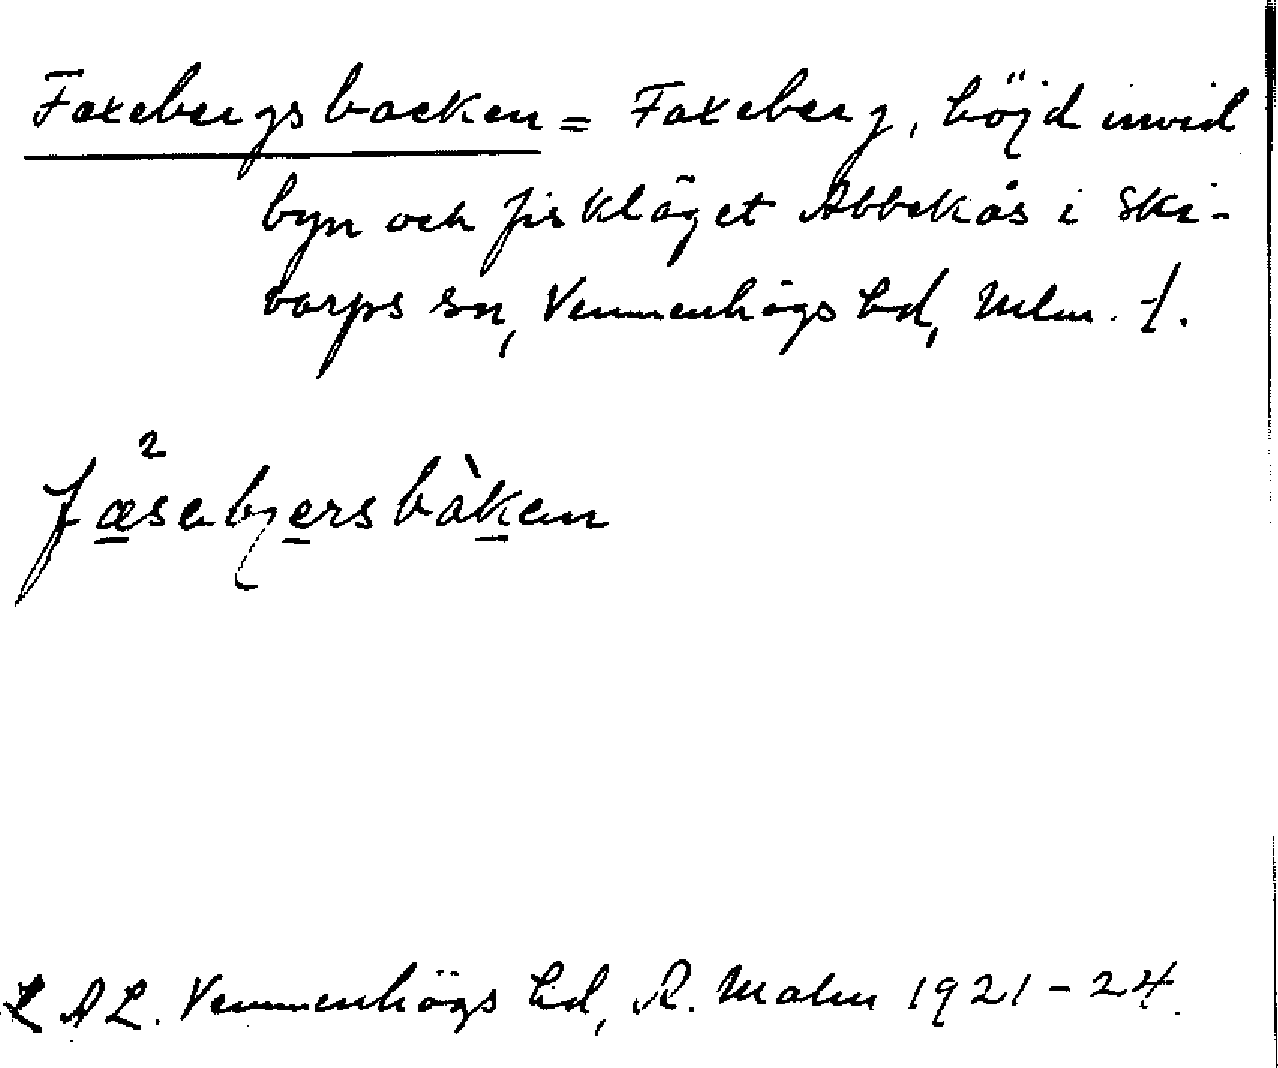 Faxebergsbacken = Faxeberg, höjd invid
byn och fiskläget Abbekås i Ski-
varps sn, Vemmenhögs hd, Mlm. l.
L A L. Vemmenhögs hd, R. Malm 1921-24.